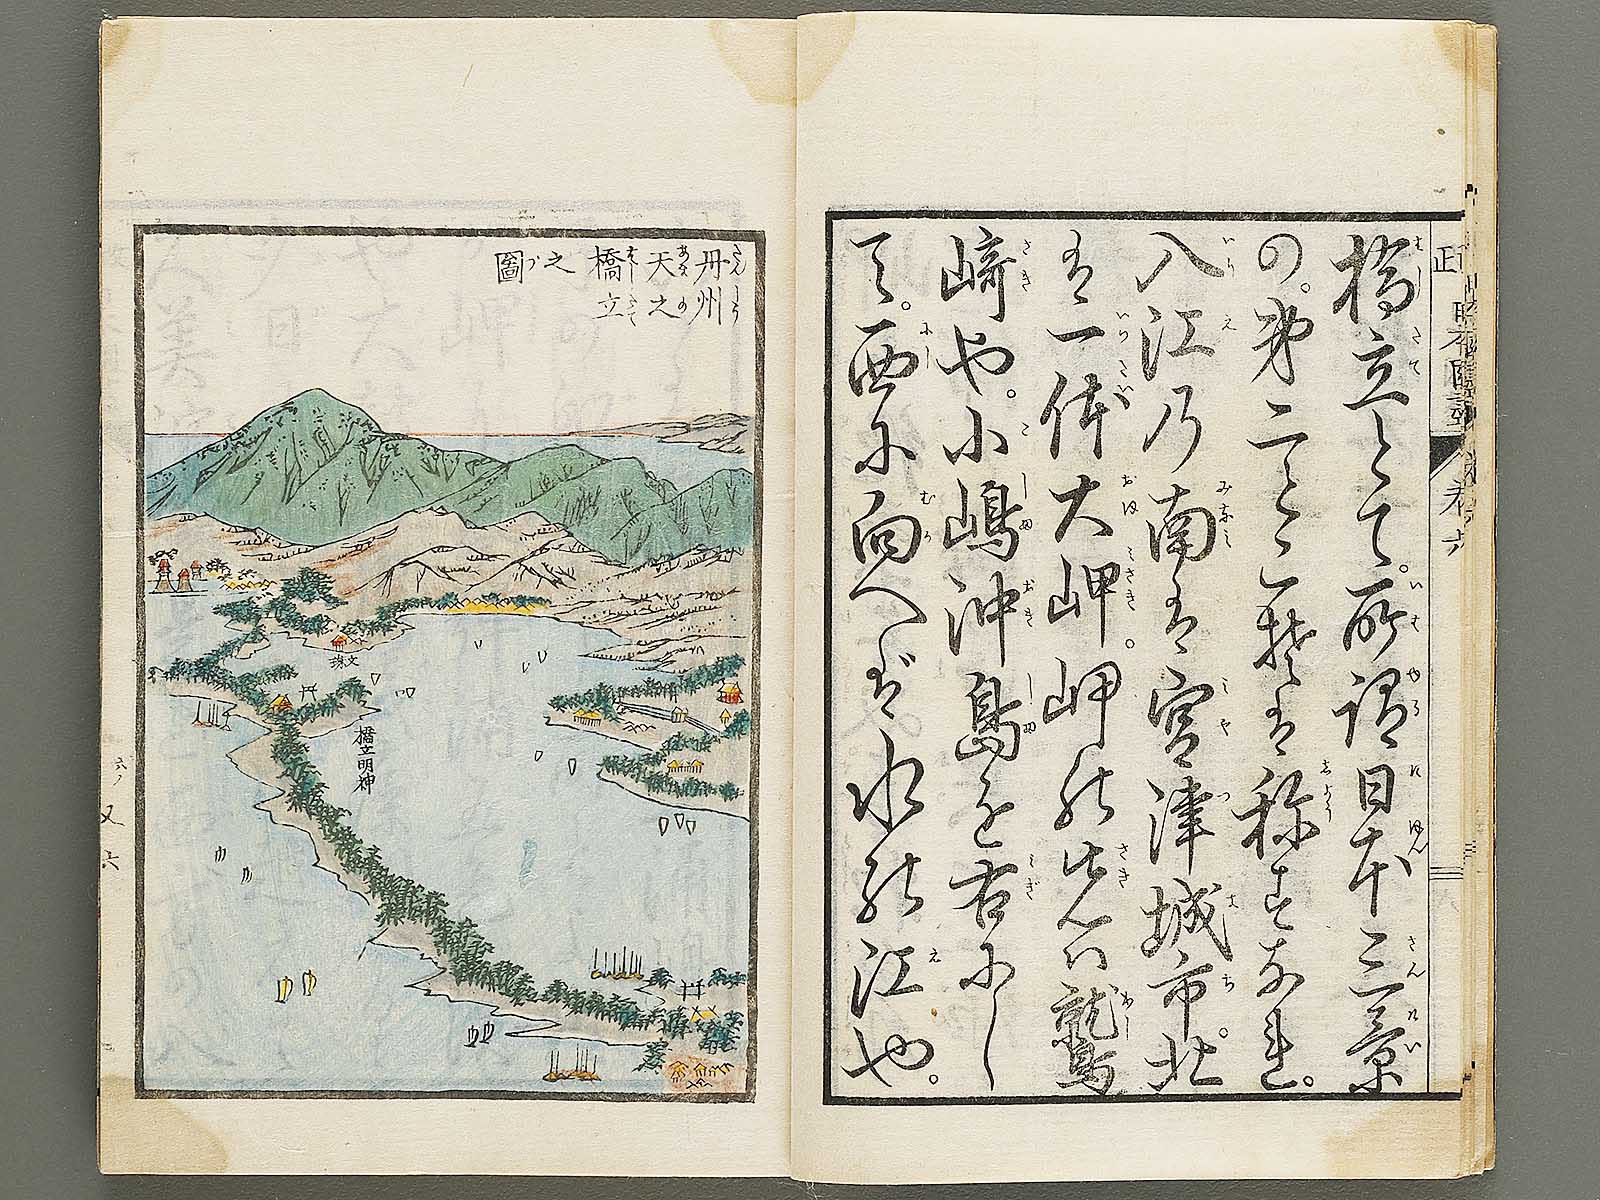 橋立とて。所謂日本三景
の。第二とこそは称すなれ。
入江乃南は宮津城市。北
は一体大岬。岬の先は鷲
崎や。小嶋沖島を右にし
て。西に向へば水の江也。
丹州
天之
橋立
之
圖
文珠
橋立明神
又六